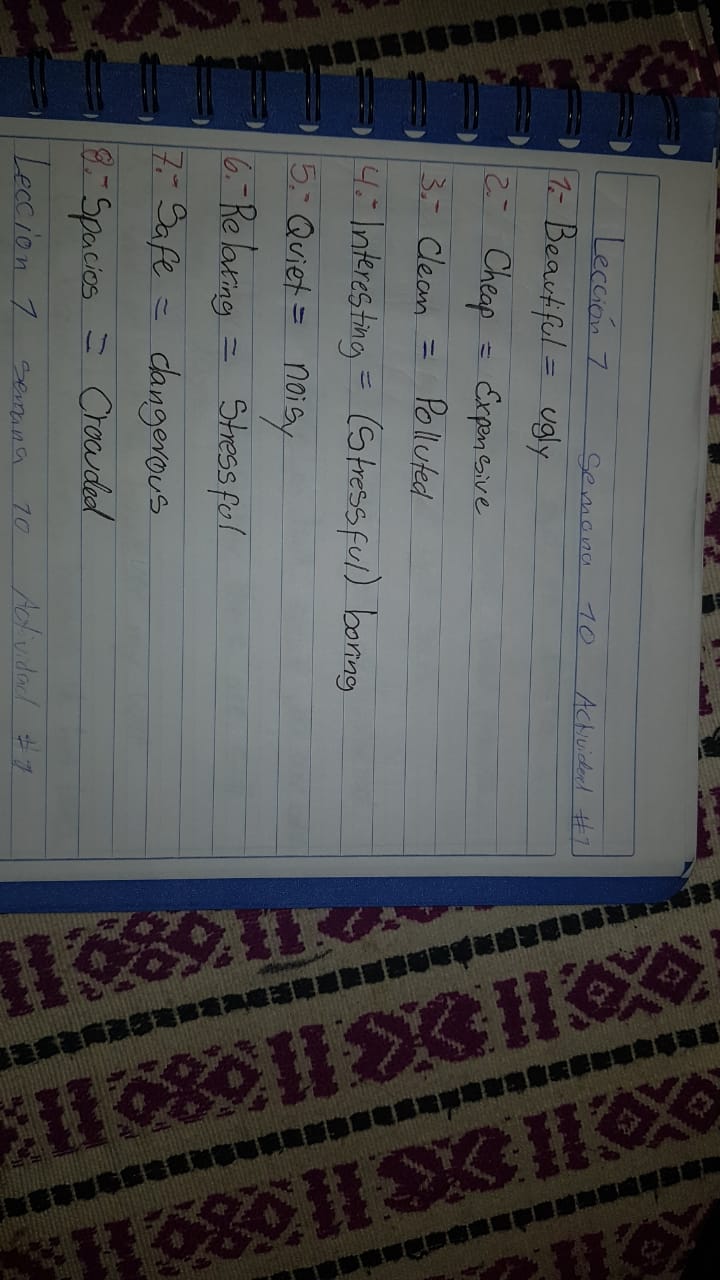 Lección 1 semana 10 Actividad #1
1.- Beautiful = ugly
2.- Cheap = Expensive
3.- Clean = Polluted
4.- Interesting = (Stressful) boring
5.- Quiet = noisy
6.- Relaxing = Stressful
7.- Safe = dangerous
8.- Spacios = Crowded
Lección 1 semana 10 Actividad #1